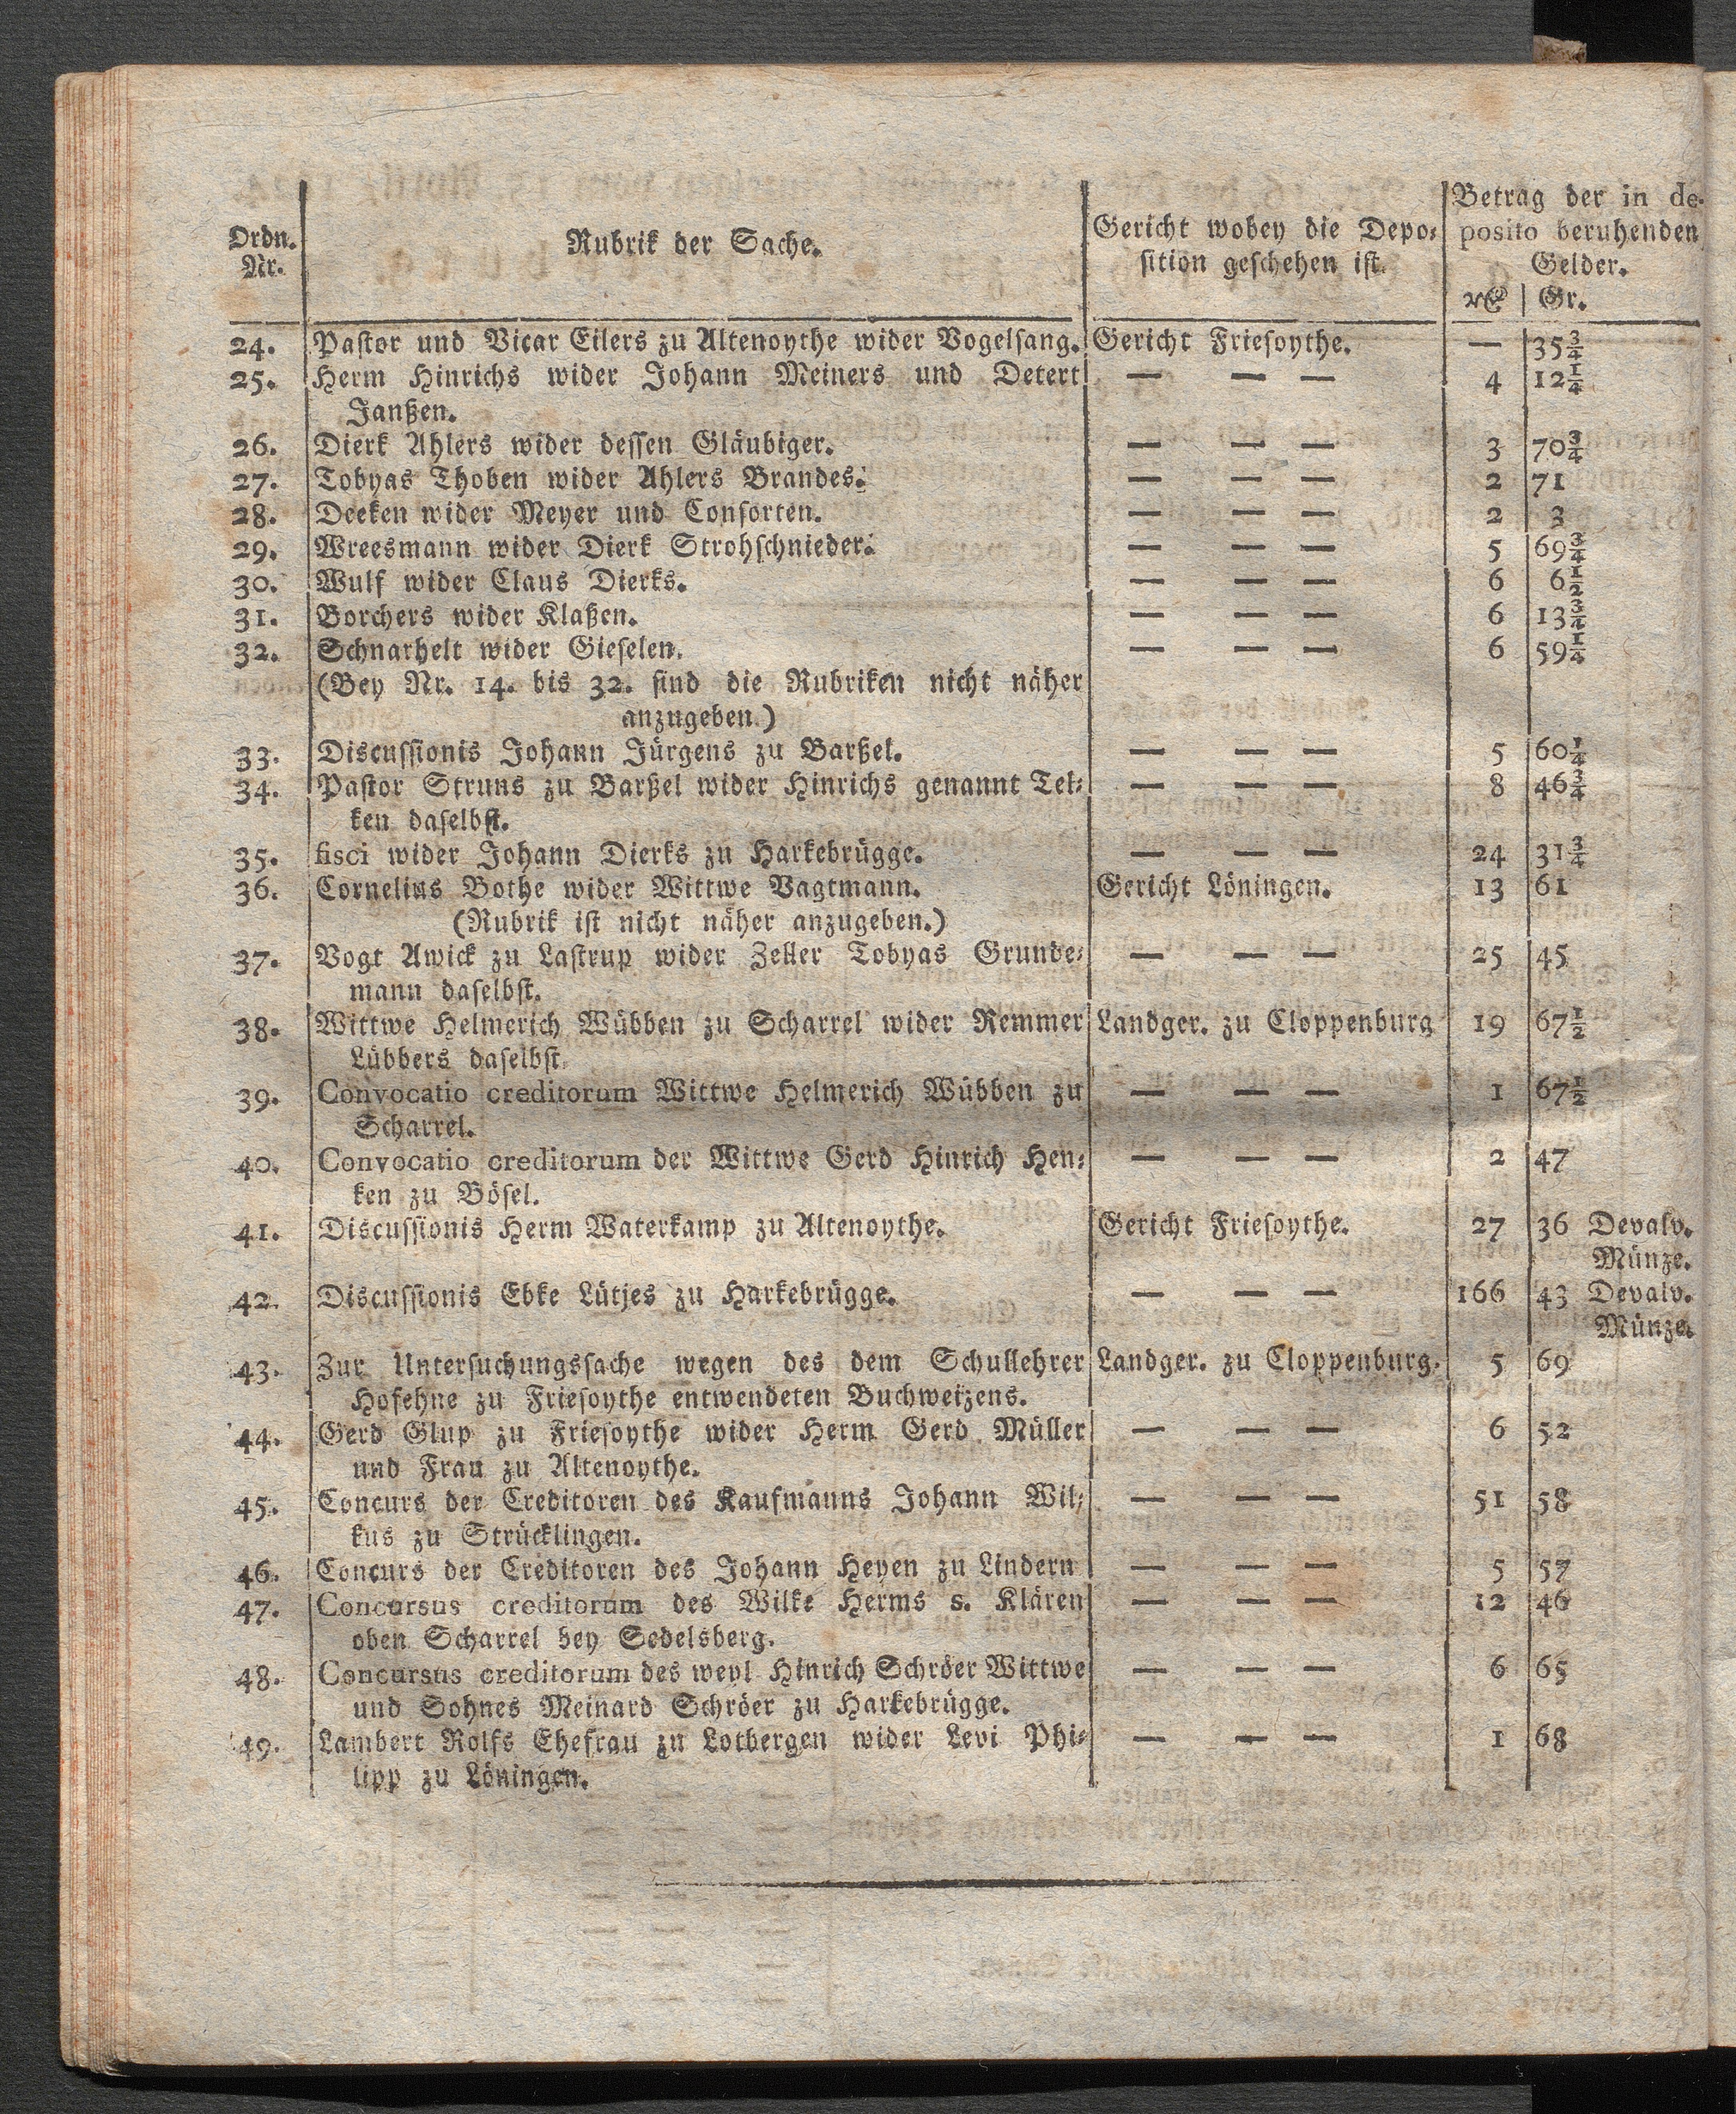 Ordn. Nr. | Rubrik der Sache. | Gericht wobey die Depo⸗sition geschehen ist. | Betrag der in de⸗posito beruhenden Gelder. | Gr.
24. Pastor und Vicar Eilers zu Altenoythe wider Vogelsang. Gericht Friesoythe. — 35¾
25. Herm Hinrichs wider Johann Meiners und Detert — — — 4 12¼
Janßen.
26. Dierk Ahlers wider dessen Gläubiger. — — — 3 70¾
27. Tobyas Thoben wider Ahlers Brandes. — — — 2 71
28. Deeken wider Meyer und Consorten. — — — 2 3
29. Wreesmann wider Dierk Strohschnieder. — — — 5 69¾
30. Wulf wider Claus Dierks. — — — 6 6½
31. Borchers wider Klaßen. — — — 6 13¾
32. Schnarhelt wider Gieselen. — — — 6 59¼
(Bey Nr. 14. bis 32. sind die Rubriken nicht näher
anzugeben.)
33. Discussionis Johann Jürgens zu Barßel. — — — 5 60¼
34. Pastor Struns zu Barßel wider Hinrichs genannt Tek⸗ — — — 8 46¾
ken daselbst.
35. fisci wider Johann Dierks zu Harkebrügge. — — — 24 31¾
36. Cornelius Bothe wider Wittwe Vagtmann. Gericht Löningen. 13 61
(Rubrik ist nicht näher anzugeben.)
37. Vogt Awick zu Lastrup wider Zeller Tobyas Grunde⸗ — — — 25 45
mann daselbst.
38. Wittwe Helmerich Wübben zu Scharrel wider Remmer Landger. zu Cloppenburg 19 67½
Lübbers daselbst.
39. Convocatio creditorum Wittwe Helmerich Wübben zu — — — 1 67½
Scharrel.
40. Convocatio creditorum der Wittwe Gerd Hinrich Hen⸗ — — — 2 47
ken zu Bösel.
41. Discussionis Herm Waterkamp zu Altenoythe. Gericht Friesoythe. 27 36 Devalv.
Münze.
42. Discussionis Ebke Lütjes zu Harkebrügge. — — — 166 43 Devalv.
Münze.
43. Zur Untersuchungssache wegen des dem Schullehrer Landger. zu Cloppenburg. 5 69
Hofehne zu Friesoythe entwendeten Buchweizens.
44. Gerd Glup zu Friesoythe wider Herm Gerd Müller — — — 6 52
und Frau zu Altenoythe.
45. Concurs der Creditoren des Kaufmanns Johann Wil⸗ — — — 51 58
kus zu Strücklingen.
46. Concurs der Creditoren des Johann Heyen zu Lindern — — — 5 57
47. Concursus creditorum des Wilke Herms s. Klären — — — 12 46
oben Scharrel bey Sedelsberg.
48. Concursus creditorum des weyl Hinrich Schröer Wittwe — — — 6 65
und Sohnes Meinard Schröer zu Harkebrügge.
49. Lambert Rolfs Ehefrau zu Lotbergen wider Levi Phi⸗ — — — 1 68
lipp zu Löningen.